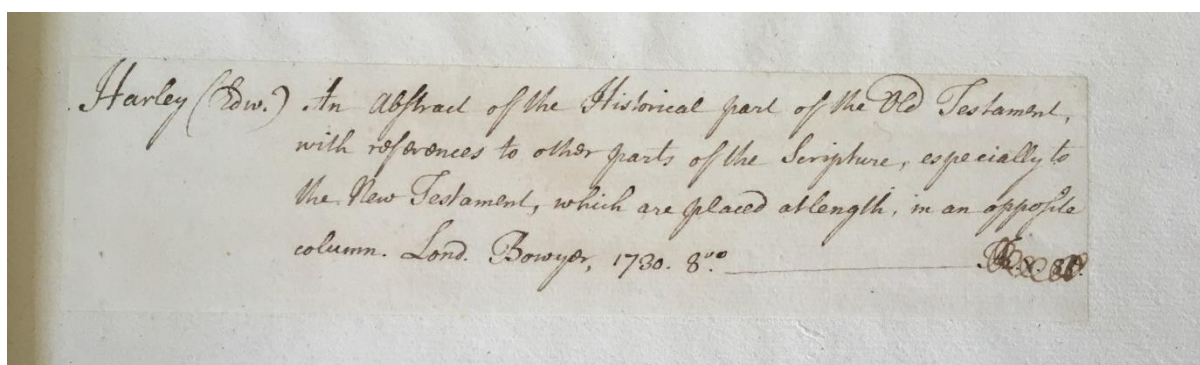 Harley (Edw.) An Abstract of the Historical part of the Old Testament,
with references to other parts of the Scripture, especially to
the New Testament, which are placed at length, in an opposite
column. Lond. Bowyer, 1730. 8vo.